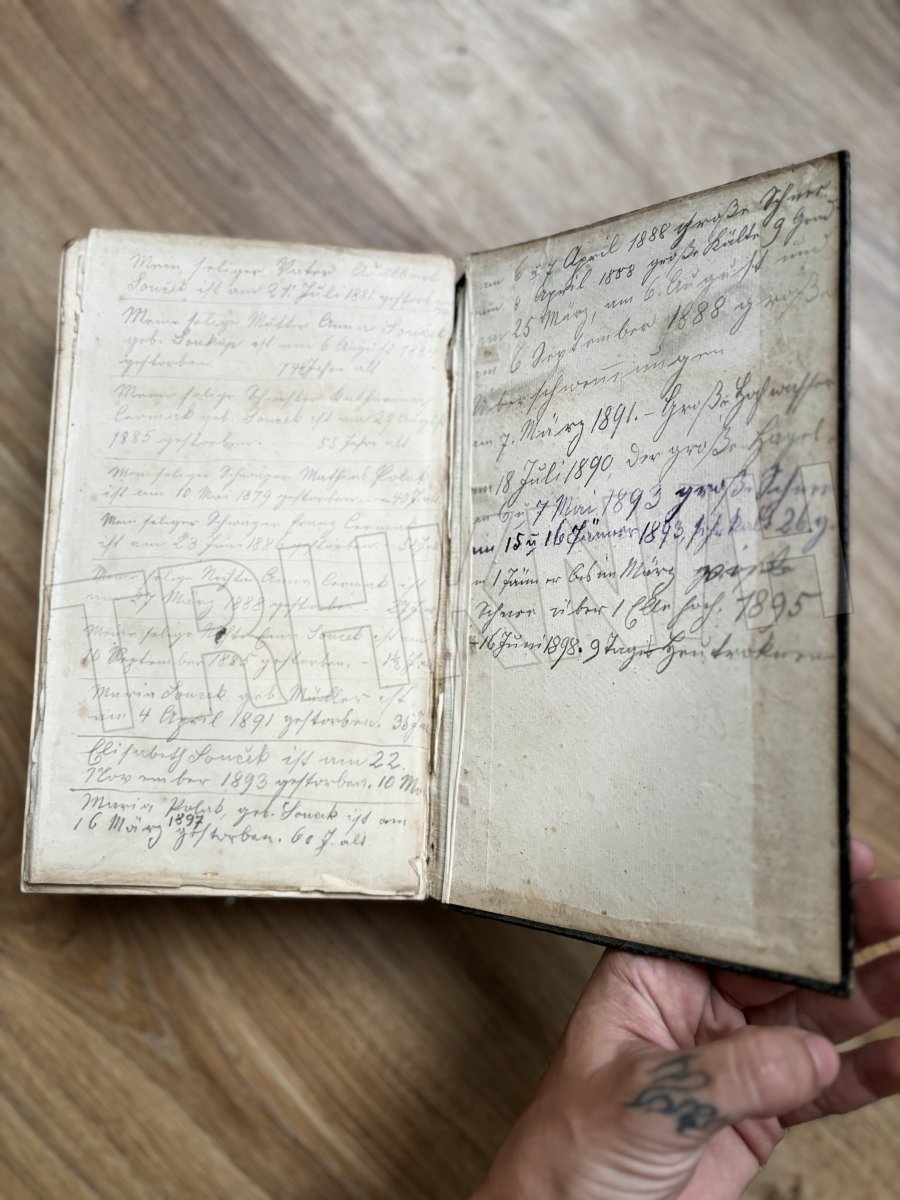 Mein seliger Vater
Souček ist am 21. Juli 1881 gestorben
Meine selige Mutter Anna Souček
geb. Soukup ist am 6 August 188
gestorben. 74 Jahre alt
Meine selige Schwester Katharina
Cermak geb. Soucek ist am 29 August
1885 gestorben. 55 Jahre alt
Mein seliger Schwager Mathias Polak
ist am 10 Mai 1879 gestorben. 40 J. alt
Mein seliger Schwager Franz Cermak
ist am 23 Juni 188 gestorben.
Meine selige Nichte Anna Cermak ist
am 27 März 1888 gestorben
Meine selige Soucek ist am
10 September 1885 gestorben. 1½ J. a
Maria Soucek geb. Müller ist
am 4 April 1891 gestorben. 38 Ja
Elisabeth Souček ist am 22.
November 1893 gestorben. 10 Mo
Maria Polak, geb. Soucek ist am
16 März 1897 gestorben. 60 J. alt
am 6 u 7 April 1888 große Schnee
am 8 April 1888 große Kälte 9 Grad
am 25 März, am 6. August und
am 6 September 1888 große
Überschwemmungen
am 7. März 1891. – Große Hochwasser
am 18 Juli 1890 der große Hagel.
am 6 u 7 Mai 1893 große Schnee
am 15 u 16 Jänner 1893, sehr kalt 26 g.
m 1 Jänner bis im März
Schnee über 1 Elle hoch. 1895
-16 Juni 1898. 9 Tage Heu troknen
TRHKNIH